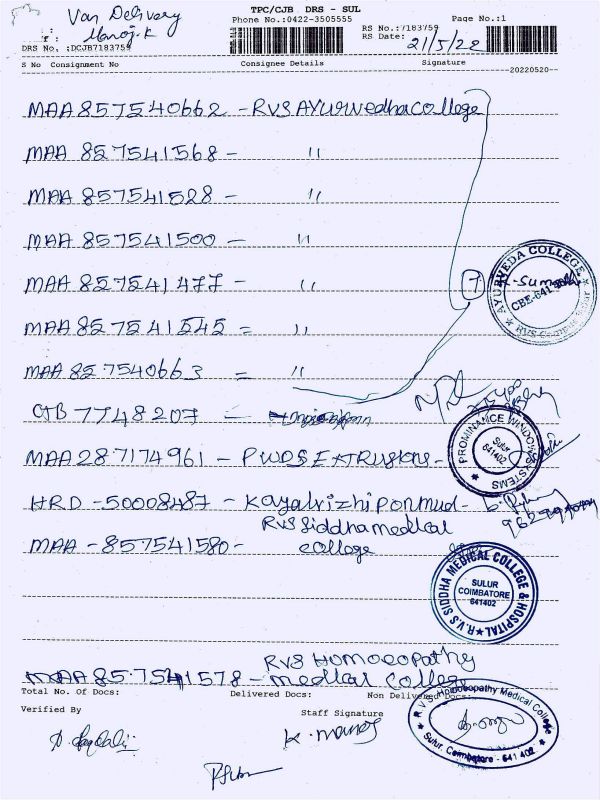 Van Delivery
Manoj.K
TPC/CJB DRS - SUL
Phone No.:0422-3505555
Page No.:1
RS No.:7183759
RS Date: 21/5/22
DRS No. :DCJB7183759
S No Consignment No Consignee Details Signature
20220520
MAA 857540662 - RVS Ayurvedha College
MAA 857541568 - "
MAA 857541528 - "
MAA 857541500 - "
MAA 857541477 - "
7
MAA 857541545 = "
MAA 857540663 = "
AYURVEDA COLLEGE
CBE-641
RVS Campus Sulur
CJB 7748207 -
MAA 287174961 - PWDS EXTRUSIONS -
PROMINANCE WINDOW SYSTEMS
Sulur
641402
HRD - 50008487 - Kayalvizhiponmud -
MAA - 857541580 - RVS Siddha medical
college
R.V.S SIDDHA MEDICAL COLLEGE & HOSPITAL
SULUR
COIMBATORE
641402
MAA 857541578 - RVS Homoeopathy
medical college
Total No. Of Docs: Delivered Docs: Non Delivered Docs:
Verified By Staff Signature
K. Manoj
R.V.S. Homoeopathy Medical College
Sulur, Coimbatore - 641 402